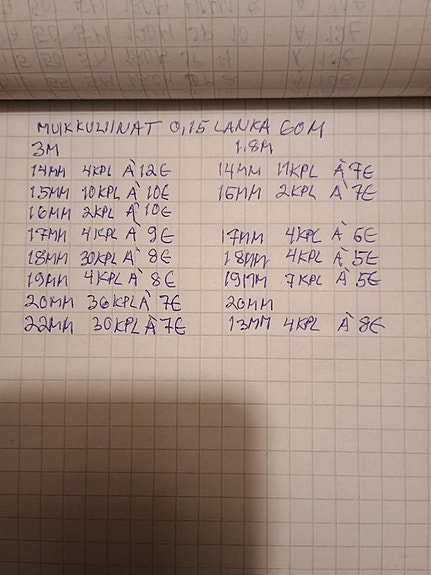 MUIKKULIINAT 0,15 LANKA 60M
3M 1.8M
14MM 4KPL À 12€ 14MM 11KPL À 7€
15MM 10KPL À 10€ 16MM 2KPL À 7€
16MM 2KPL À 10€
17MM 4KPL À 9€ 17MM 4KPL À 6€
18MM 30KPL À 8€ 18MM 4KPL À 5€
19MM 4KPL À 8€ 19MM 7KPL À 5€
20MM 36KPL À 7€ 20MM
22MM 30KPL À 7€ 13MM 4KPL À 8€